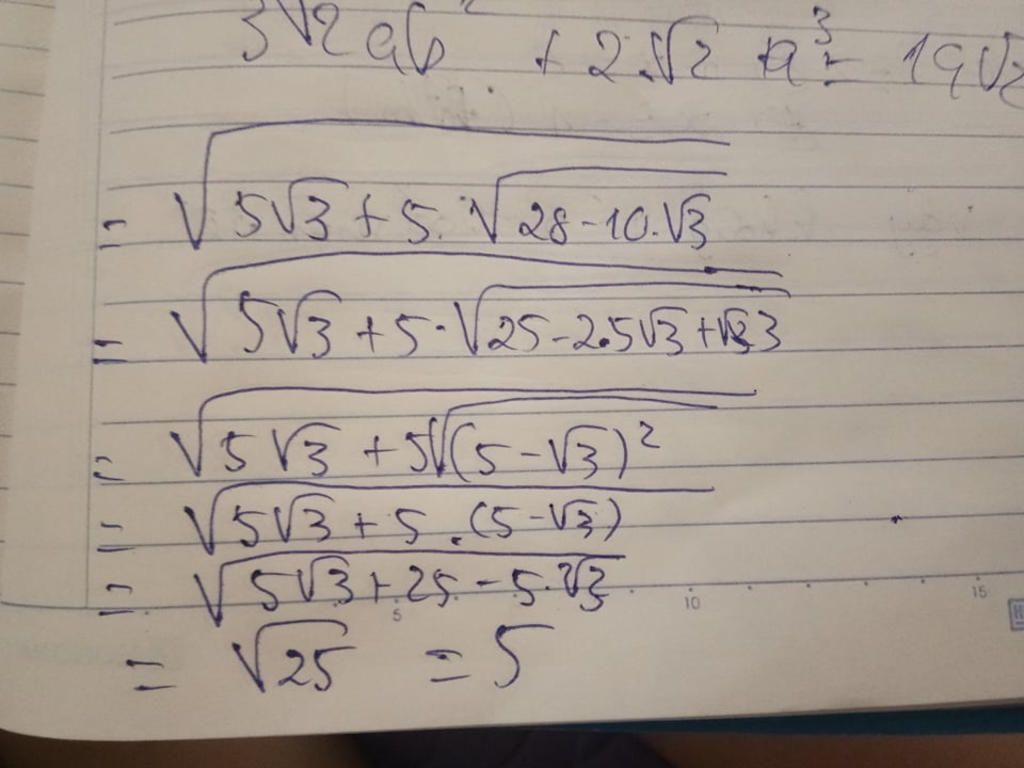 3√2ab² + 2.√2 a³ = 19√2
= √(5√3 + 5.√(28-10.√3))
= √(5√3 + 5.√(25-2.5√3+3))
= √(5√3 + 5√((5-√3)²))
= √(5√3 + 5.(5-√3))
= √(5√3 + 25 - 5.√3)
= √25 = 5
5 10 15